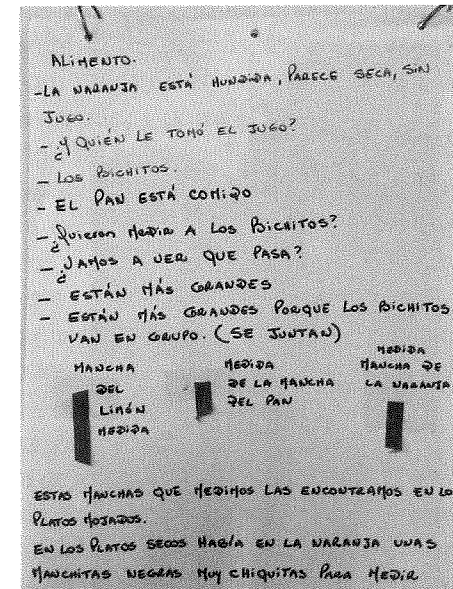 ALIMENTO.
-LA NARANJA ESTÁ HUNDIDA, PARECE SECA, SIN
JUGO.
- ¿Y QUIÉN LE TOMÓ EL JUGO?
- LOS BICHITOS.
- EL PAN ESTÁ COMIDO
- ¿QUIEREN MEDIR A LOS BICHITOS?
- ¿VAMOS A VER QUE PASA?
- ESTÁN MÁS GRANDES
- ESTÁN MÁS GRANDES PORQUE LOS BICHITOS
VAN EN GRUPO. (SE JUNTAN)
MANCHA
DEL
LIMÓN
MEDIDA
MEDIDA
DE LA MANCHA
DEL PAN
MEDIDA
MANCHA DE
LA NARANJA
ESTAS MANCHAS QUE MEDIMOS LAS ENCONTRAMOS EN LO
PLATOS MOJADOS.
EN LOS PLATOS SECOS HABÍA EN LA NARANJA UNAS
MANCHITAS NEGRAS MUY CHIQUITAS PARA MEDIR